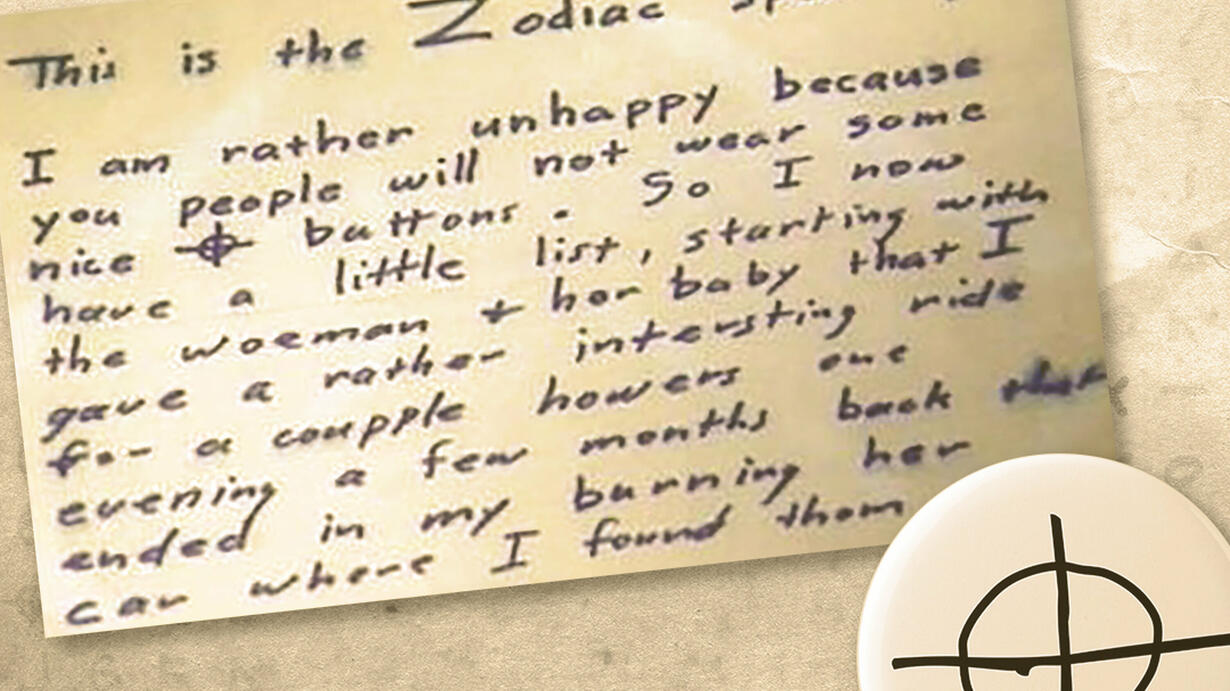 This is the Zodiac
I am rather unhappy because
you people will not wear some
nice ⌖ buttons. So I now
have a little list, starting with
the woeman + her baby that I
gave a rather intersting ride
for a coupple howers one
evening a few months back that
ended in my burning her
car where I found them